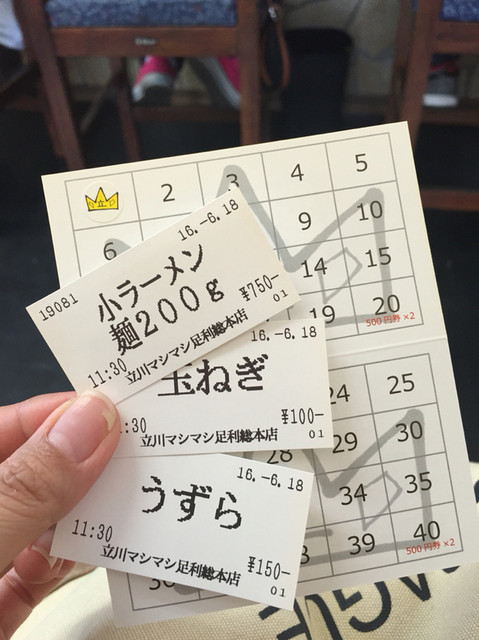 2 3 4 5
6 9 10
14 15
19 20
500円券×2
24 25
28 29 30
34 35
39 40
500円券×2
16.-6.18
19081
小ラーメン
麺200g
¥750-
11:30
立川マシマシ足利総本店
01
16.-6.18
玉ねぎ
:30
¥100-
立川マシマシ足利総本店
01
16.-6.18
うずら
11:30
¥150-
立川マシマシ足利総本店
01